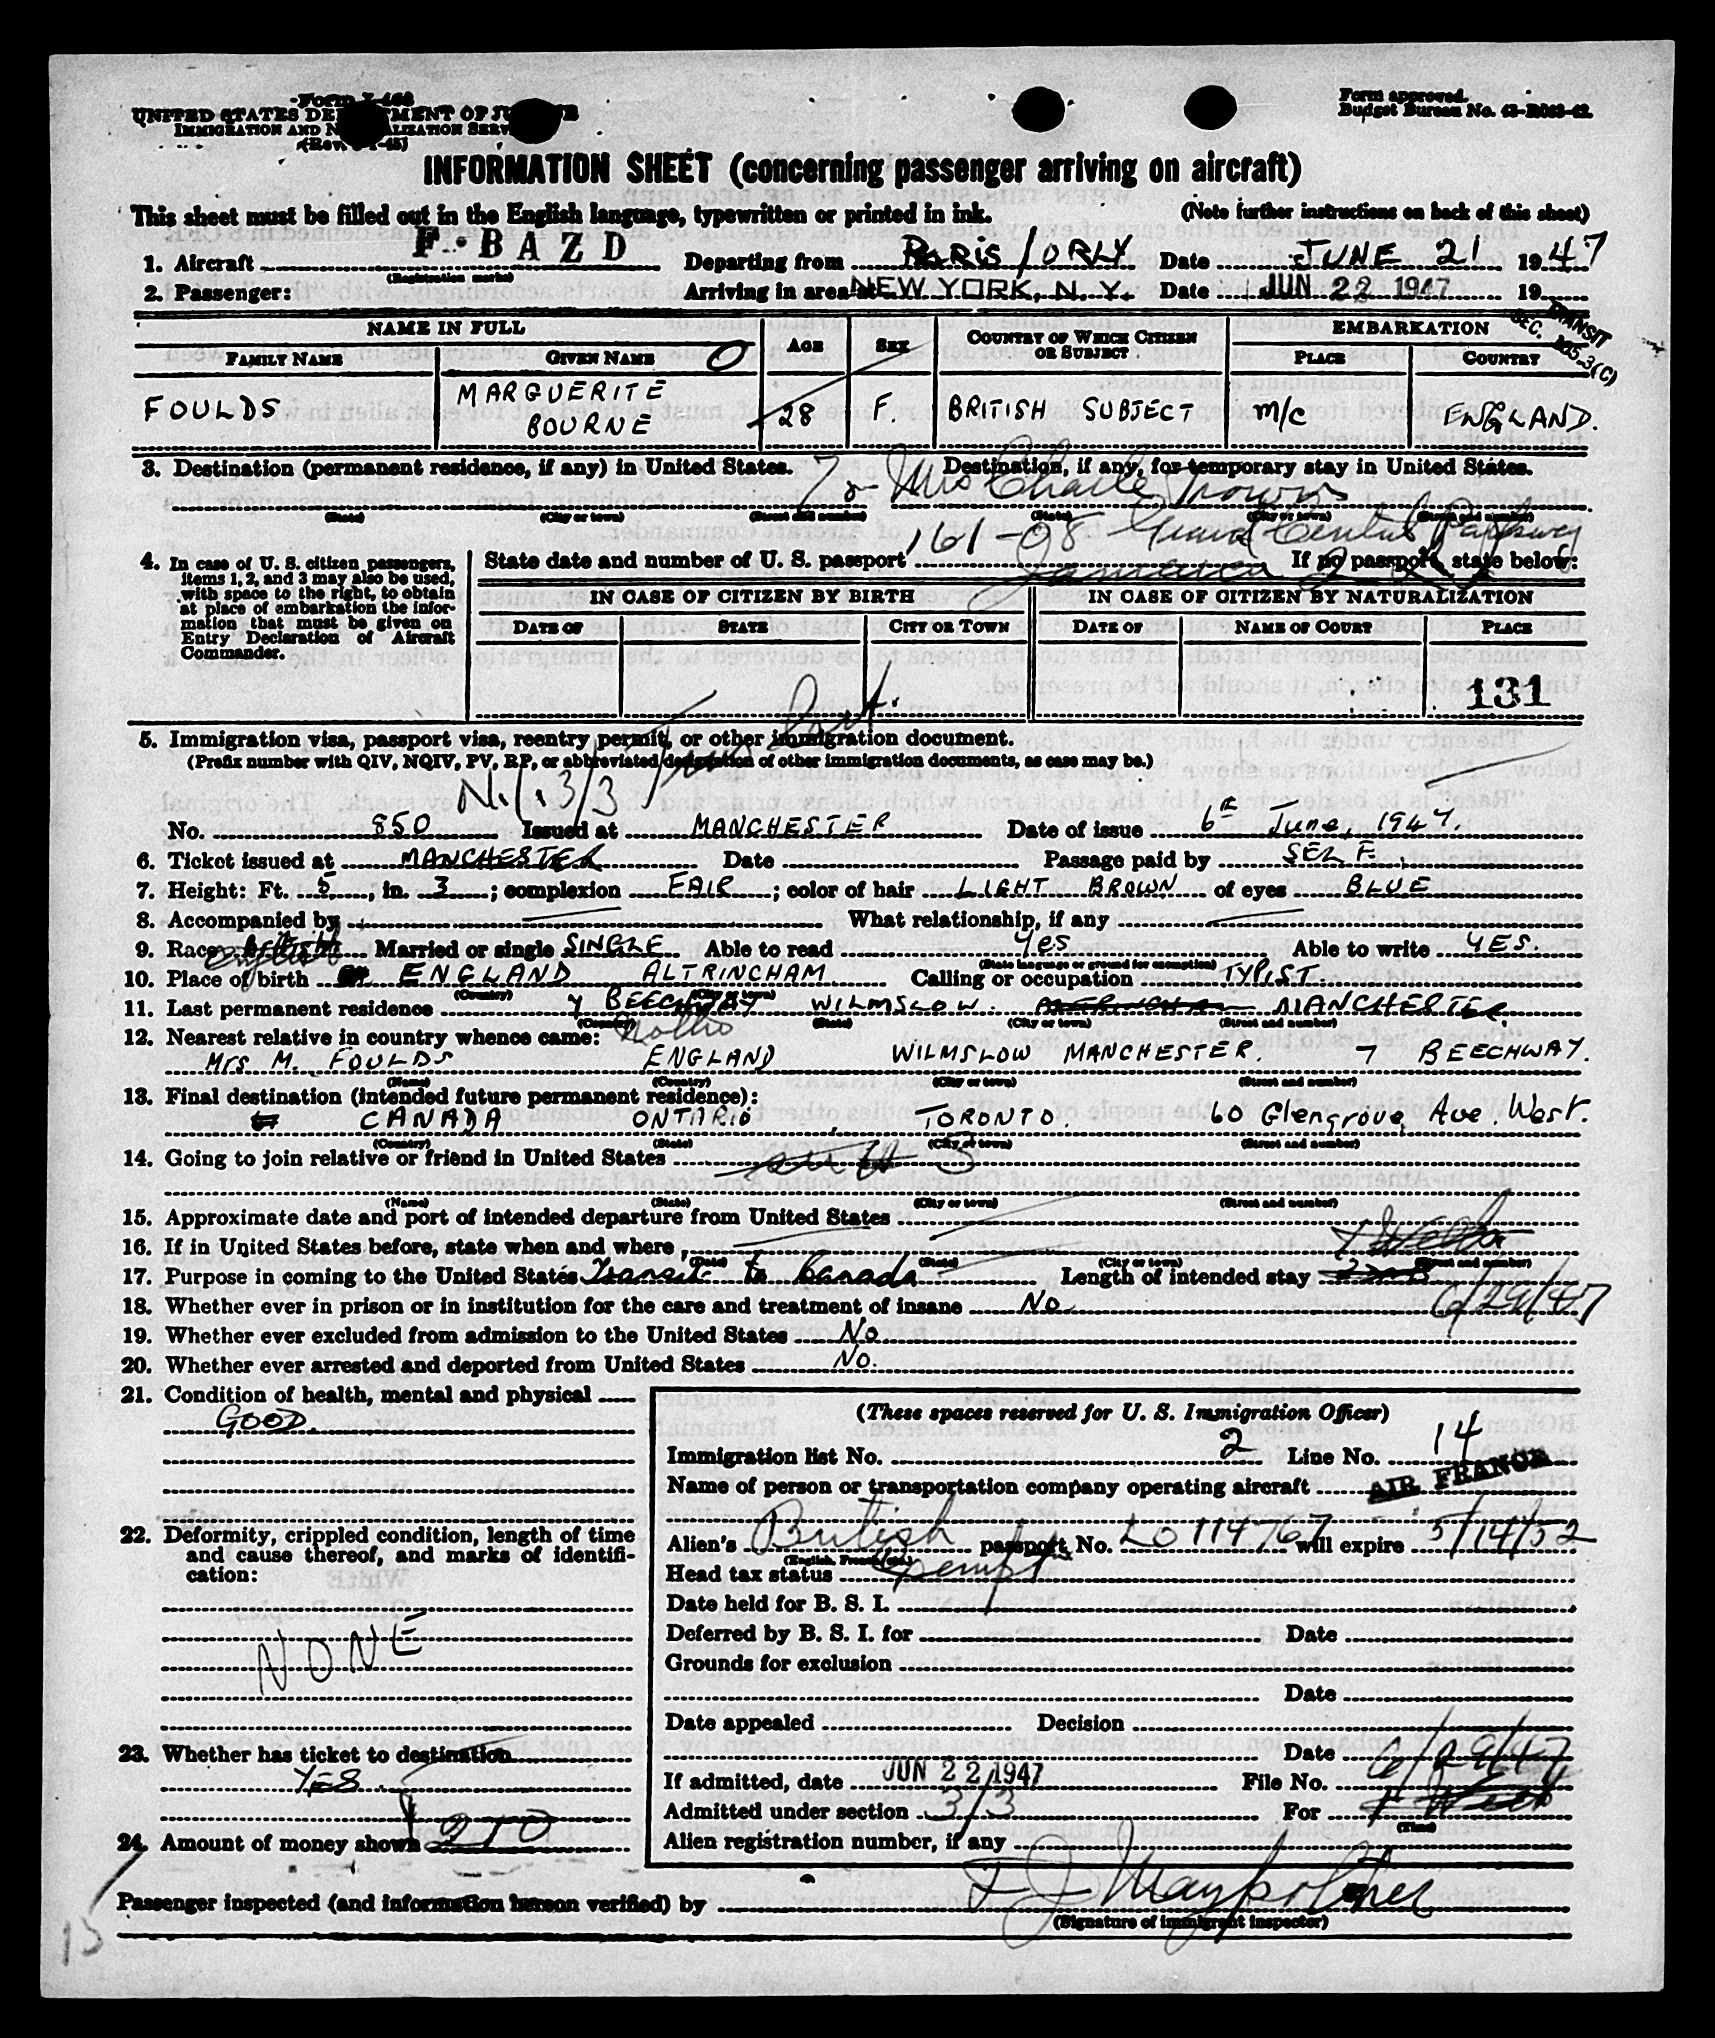 Form I-466
UNITED STATES DEPARTMENT OF JUSTICE
IMMIGRATION AND NATURALIZATION SERVICE
Form approved.
Budget Bureau No. 43-R063-42.
INFORMATION SHEET (concerning passenger arriving on aircraft)
This sheet must be filled out in the English language, typewritten or printed in ink. (Note further instructions on back of this sheet)
1. Aircraft F-BAZD Departing from PARIS/ORLY Date JUNE 21 1947
(Registration marks)
2. Passenger: Arriving in area at NEW YORK, N. Y. Date JUN 22 1947 19
TRANSIT
SEC. 105.3(C)
NAME IN FULL AGE SEX COUNTRY OF WHICH CITIZEN OR SUBJECT EMBARKATION
FAMILY NAME GIVEN NAME O PLACE COUNTRY
FOULDS MARGUERITE BOURNE 28 F. BRITISH SUBJECT M/C ENGLAND.
3. Destination (permanent residence, if any) in United States. Destination, if any, for temporary stay in United States.
Mrs Charles
(State) (City or town) (Street and number) (State) (City or town) (Street and number)
161-08 Grand Central Parkway
4. In case of U. S. citizen passengers, items 1, 2, and 3 may also be used, with space to the right, to obtain at place of embarkation the information that must be given on Entry Declaration of Aircraft Commander.
State date and number of U. S. passport If no passport, state below:
Jamaica
IN CASE OF CITIZEN BY BIRTH IN CASE OF CITIZEN BY NATURALIZATION
DATE OF STATE CITY OR TOWN DATE OF NAME OF COURT PLACE
131
5. Immigration visa, passport visa, reentry permit, or other immigration document.
(Prefix number with QIV, NQIV, PV, RP, or abbreviated designation of other immigration documents, as case may be.)
N.I. 3/3
No. 850 Issued at MANCHESTER Date of issue 6th June, 1947.
6. Ticket issued at MANCHESTER Date Passage paid by SELF.
7. Height: Ft. 5, in. 3; complexion FAIR; color of hair LIGHT BROWN of eyes BLUE
8. Accompanied by What relationship, if any
9. Race English Married or single SINGLE Able to read Yes Able to write YES.
(State language or ground for exemption)
10. Place of birth ENGLAND ALTRINCHAM Calling or occupation TYPIST.
(Country) (City or town)
11. Last permanent residence 7 BEECHWAY WILMSLOW. MANCHESTER.
(Country) (State) (City or town) (Street and number)
12. Nearest relative in country whence came: Mother
Mrs M. FOULDS ENGLAND WILMSLOW MANCHESTER. 7 BEECHWAY.
(Name) (Country) (City or town) (Street and number)
13. Final destination (intended future permanent residence):
CANADA ONTARIO TORONTO. 60 Glengrove Ave. West.
(Country) (State) (City or town) (Street and number)
14. Going to join relative or friend in United States
(Name) (State) (City or town) (Street and number)
15. Approximate date and port of intended departure from United States
16. If in United States before, state when and where
(Date) (State) (City or town) (Street and number)
17. Purpose in coming to the United States Transit to Canada Length of intended stay
6/29/47
18. Whether ever in prison or in institution for the care and treatment of insane No
19. Whether ever excluded from admission to the United States No
20. Whether ever arrested and deported from United States No.
21. Condition of health, mental and physical
GOOD.
22. Deformity, crippled condition, length of time and cause thereof, and marks of identification:
NONE
23. Whether has ticket to destination
YES.
24. Amount of money shown $210
(These spaces reserved for U. S. Immigration Officer)
Immigration list No. 2 Line No. 14
Name of person or transportation company operating aircraft AIR FRANCE
Alien's British passport, No. LO 114767 will expire 5/14/52
(English, French, etc.)
Head tax status Exempt
Date held for B. S. I.
Deferred by B. S. I. for Date
Grounds for exclusion
Date
Date appealed Decision
Date 6/29/47
If admitted, date JUN 22 1947 File No.
Admitted under section 3/3 For
(Time)
Alien registration number, if any
Passenger inspected (and information hereon verified) by
(Signature of immigrant inspector)